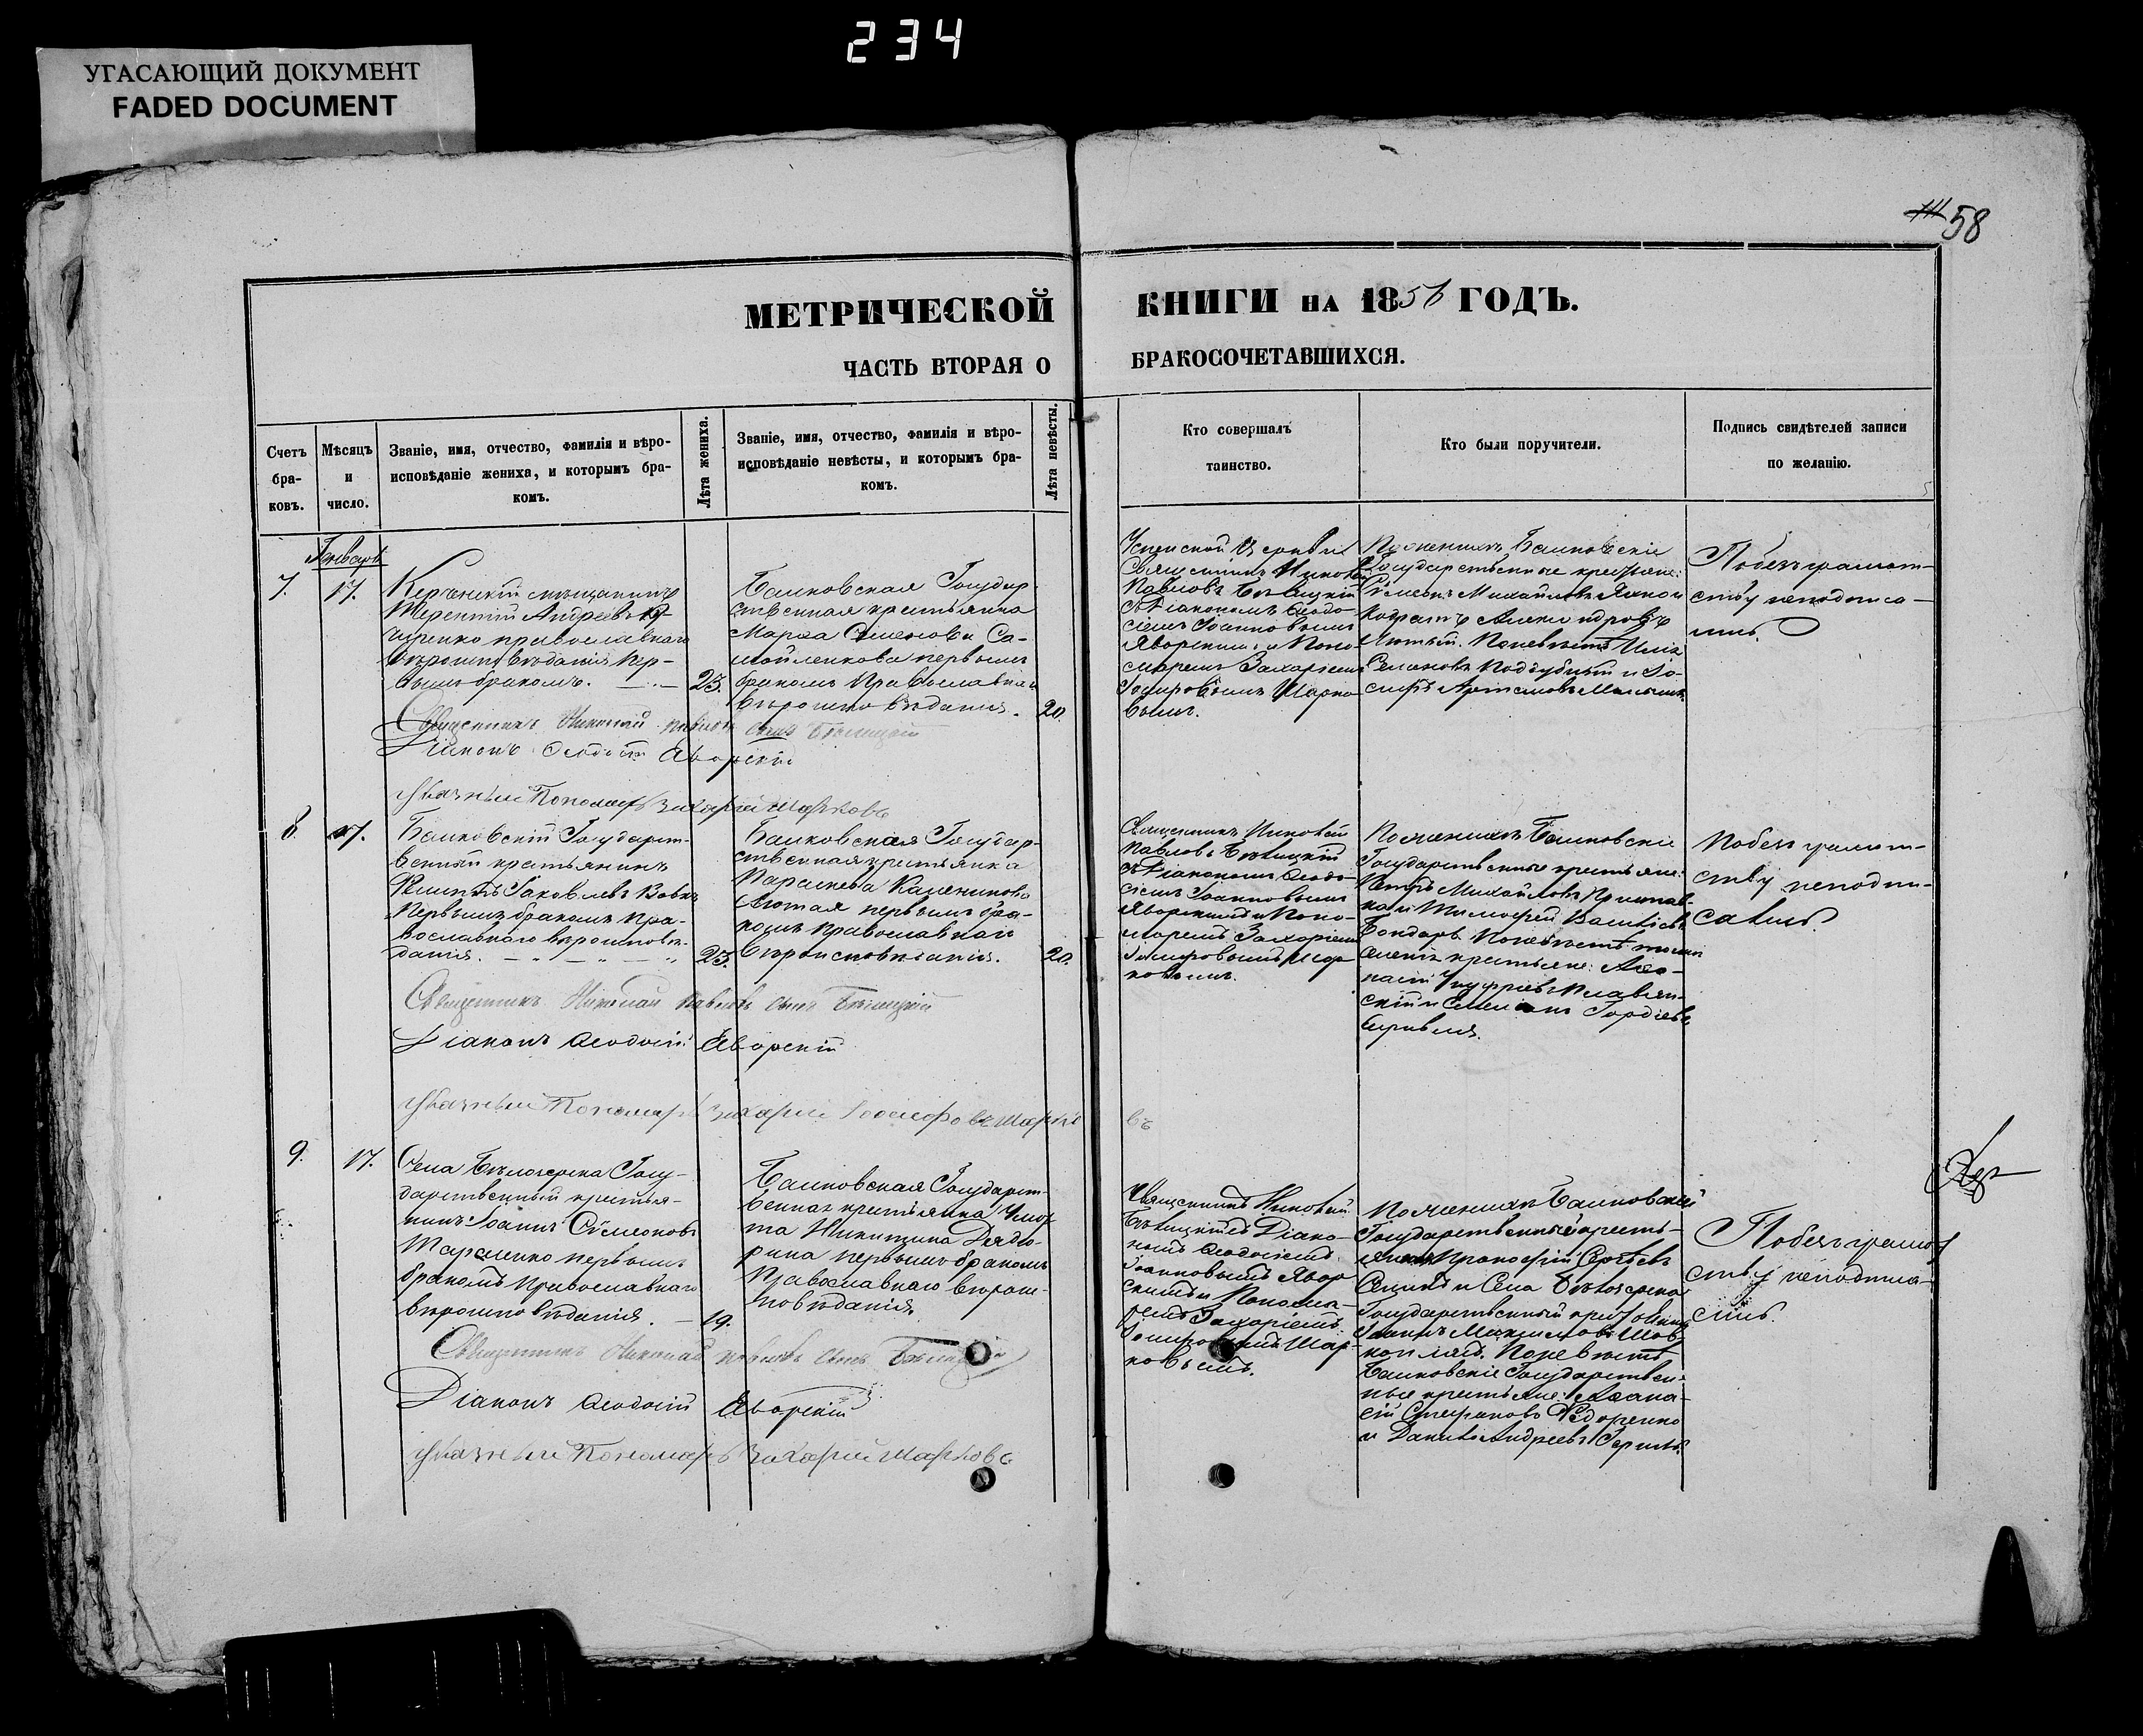 234
УГАСАЮЩИЙ ДОКУМЕНТ
FADED DOCUMENT
58
МЕТРИЧЕСКОЙ КНИГИ НА 1856 ГОДЪ.
ЧАСТЬ ВТОРАЯ О БРАКОСОЧЕТАВШИХСЯ.
Счетъ бра-
ковъ.
Мѣсяцъ
и
число.
Званіе, имя, отчество, фамилія и вѣро-
исповѣданіе жениха, и которымъ бра-
комъ.
Лѣта жениха.
Званіе, имя, отчество, фамилія и вѣро-
исповѣданіе невѣсты, и которымъ бра-
комъ.
Лѣта невѣсты.
Кто совершалъ
таинство.
Кто были поручители.
Подпись свидѣтелей записи
по желанію.
Январь
7.
17.
Керченскій мѣщанинъ
Терентій Андреевъ
православнаго
вѣроисповѣданія пер-
вымъ бракомъ.
23.
Балковская Государ-
ственная крестьянка
Марѳа Симеонова Са-
мойленкова первымъ
бракомъ Православнаго
вѣроисповѣданія.
20.
Успенской Церкви
Священникъ Николай
Павловъ Бѣлицкій
съ Діакономъ Ѳеодо-
сіемъ Іоанновымъ
Яворскимъ и Поно-
маремъ Захаріемъ
Іосифовымъ Шарко-
вымъ.
По женихѣ Балковскіе
Государственные крестьяне:
Симеонъ Михайловъ
Кодратъ Александровъ
Лютый. По невѣстѣ Илія
Семеновъ Поддубный и Іо-
сифъ Артемовъ
По безграмот-
ству неподписа-
лись.
Священникъ Николай Павловъ сынъ Бѣлицкій
Діаконъ Ѳеодосій Яворскій
Указный Пономарь Захарій Шарковъ
8.
17.
Балковскій Государст-
венный крестьянинъ
Филиппъ Іаковлевъ Вовкъ
первымъ бракомъ пра-
вославнаго вѣроисповѣ-
данія.
23.
Балковская Государ-
ственная крестьянка
Параскева Каленикова
Лютая первымъ бра-
комъ православнаго
вѣроисповѣданія.
20.
Священникъ Николай
Павловъ Бѣлицкій
съ Діакономъ Ѳеодо-
сіемъ Іоанновымъ
Яворскимъ и Поно-
маремъ Захаріемъ
Іосифовымъ Шар-
ковымъ.
По женихѣ Балковскіе
Государственные крестьяне:
Петръ Михайловъ
и Тимофей Васильевъ
Бондарь. По невѣстѣ
крестьяне: Аѳа-
насій
и Симеонъ Гордіевъ
По безграмот-
ству неподпи-
сались.
Священникъ Николай Павловъ сынъ Бѣлицкій
Діаконъ Ѳеодосій Яворскій
Указный Пономарь Захарій Іосифовъ Шарковъ
9.
17.
Села Бѣлозерка Госу-
дарственный крестья-
нинъ Іоаннъ Симеоновъ
Тараненко первымъ
бракомъ православнаго
вѣроисповѣданія.
19.
Балковская Государст-
венная крестьянка
Никитина
первымъ бракомъ
Православнаго вѣроис-
повѣданія.
Священникъ Николай
Бѣлицкій съ Діако-
номъ Ѳеодосіемъ
Іоанновымъ Явор-
скимъ и Понома-
ремъ Захаріемъ
Іосифовымъ Шар-
ковымъ.
По женихѣ Балковскій
Государственный кресть-
янинъ Прокофій Сергѣевъ
и Села Бѣлозерка
Государственный крестьянинъ
Іоаннъ Максимовъ
По невѣстѣ
Балковскіе Государствен-
ные крестьяне: Аѳана-
сій Стефановъ Ѳедоренко
и Данило Андреевъ
По безграмот-
ству неподписа-
лись.
Священникъ Николай Павловъ сынъ Бѣлицкій
Діаконъ Ѳеодосій Яворскій
Указный Пономарь Захарій Шарковъ